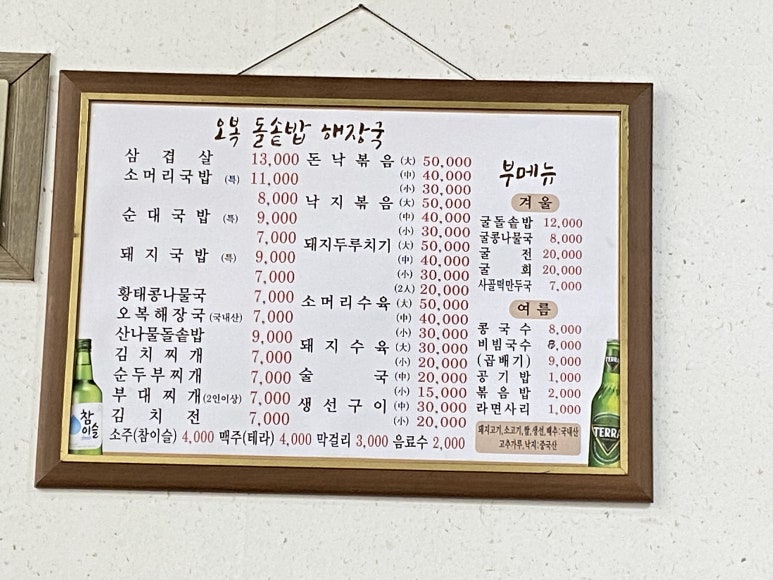 오복 돌솥밥 해장국
삼겹살 13,000
소머리국밥 (특) 11,000
8,000
순대국밥 (특) 9,000
7,000
돼지국밥 (특) 9,000
7,000
황태콩나물국 7,000
오복해장국 (국내산) 7,000
산나물돌솥밥 9,000
김치찌개 7,000
순두부찌개 7,000
부대찌개 (2인이상) 7,000
김치전 7,000
돈낙볶음 (大) 50,000
(中) 40,000
(小) 30,000
낙지볶음 (大) 50,000
(中) 40,000
(小) 30,000
돼지두루치기 (大) 50,000
(中) 40,000
(小) 30,000
(2人) 20,000
소머리수육 (大) 50,000
(中) 40,000
(小) 30,000
돼지수육 (大) 30,000
(小) 20,000
술국 (中) 20,000
(小) 15,000
생선구이 (中) 30,000
(小) 20,000
소주(참이슬) 4,000 맥주(테라) 4,000 막걸리 3,000 음료수 2,000
부메뉴
겨울
굴돌솥밥 12,000
굴콩나물국 8,000
굴전 20,000
굴회 20,000
사골떡만두국 7,000
여름
콩국수 8,000
비빔국수 8,000
(곱배기) 9,000
공기밥 1,000
볶음밥 2,000
라면사리 1,000
돼지고기,소고기,쌀,생선,배추:국내산
고추가루,낙지:중국산
참
이슬
TERRA
TERRA